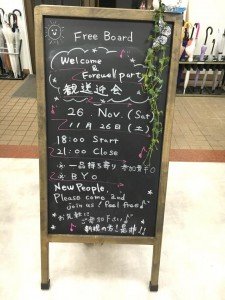 Free Board
Welcome
&
Forewell party
歓送迎会
26. Nov. (Sat)
11月26日(土)
18:00 Start
21:00 Close
※一品持ち寄り 参加費¥0
※ BYO
New People,
Please come and
join us! Feel free♪
お気軽に
ご参加下さい♪
新規の方!是非!!